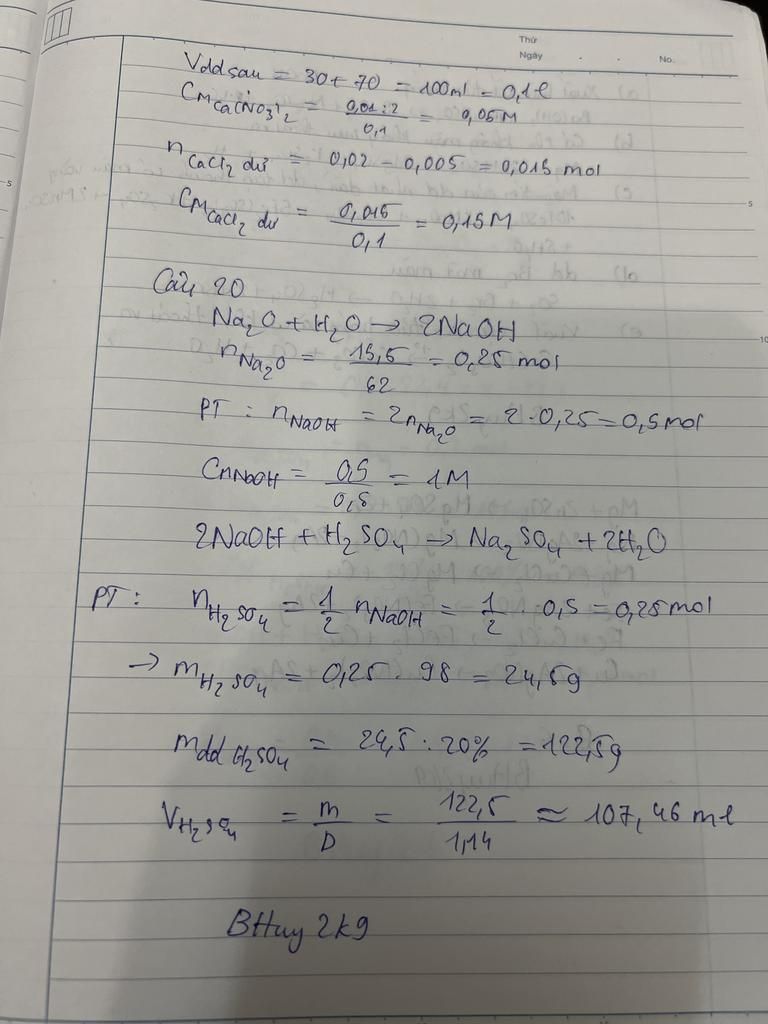 Thứ
Ngày . . No.
Vdd sau = 30 + 70 = 100ml = 0,1 l
CM Ca(NO3)2 = 0,01 : 2 / 0,1 = 0,05M
n CaCl2 dư = 0,02 - 0,005 = 0,015 mol
CM CaCl2 dư = 0,015 / 0,1 = 0,15M
Câu 20
Na2O + H2O → 2NaOH
n Na2O = 15,5 / 62 = 0,25 mol
PT : n NaOH = 2n Na2O = 2 . 0,25 = 0,5 mol
CM NaOH = 0,5 / 0,5 = 1M
2NaOH + H2SO4 → Na2SO4 + 2H2O
PT : n H2SO4 = 1/2 n NaOH = 1/2 . 0,5 = 0,25 mol
→ m H2SO4 = 0,25 . 98 = 24,5g
mdd H2SO4 = 24,5 : 20% = 122,5g
V H2SO4 = m / D = 122,5 / 1,14 ≈ 107,46 ml
BHuy 2k9
5
5
10